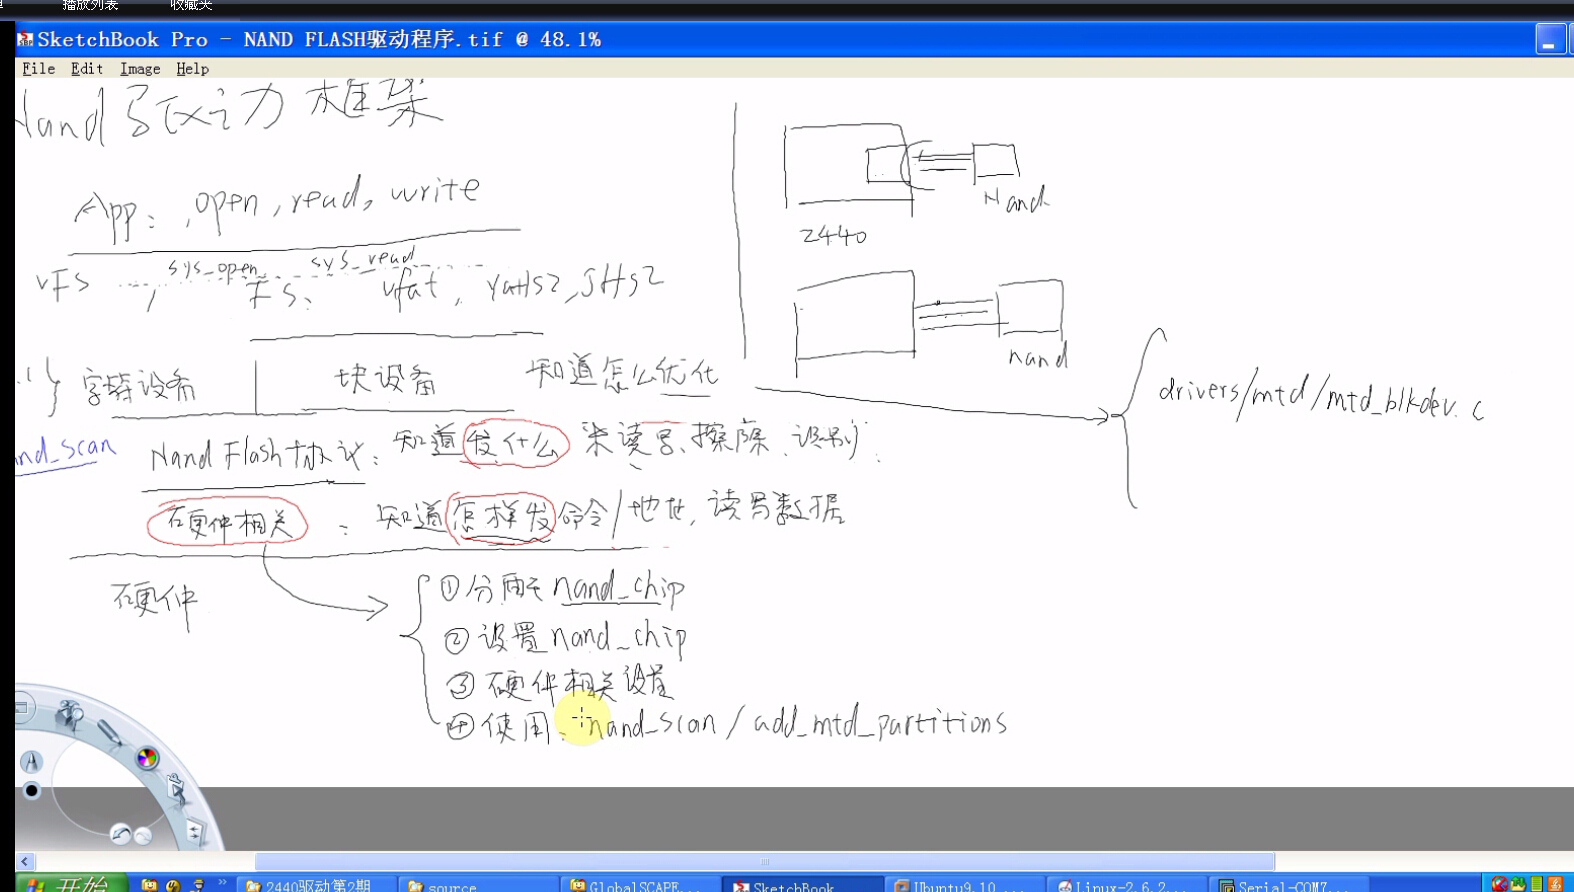 播放列表 收藏夹
SketchBook Pro - NAND FLASH驱动程序.tif @ 48.1%
File Edit Image Help
Nand驱动框架
App: ,open, read, write
sys_open sys_read
VFS
FS: vfat, yaffs2, jffs2
字符设备 块设备 知道怎么优化
nd_scan
Nand Flash协议: 知道发什么来读写、擦除、识别
硬件相关: 知道怎样发命令/地址, 读写数据
硬件
①分配 nand_chip
②设置 nand_chip
③硬件相关设置
④使用: nand_scan / add_mtd_partitions
2440
Nand
nand
drivers/mtd/mtd_blkdev.c
开始 2440驱动第2期 source GlobalSCAPE... SketchBook Ubuntu9.10 ... Linux-2.6.2... Serial-COM7...